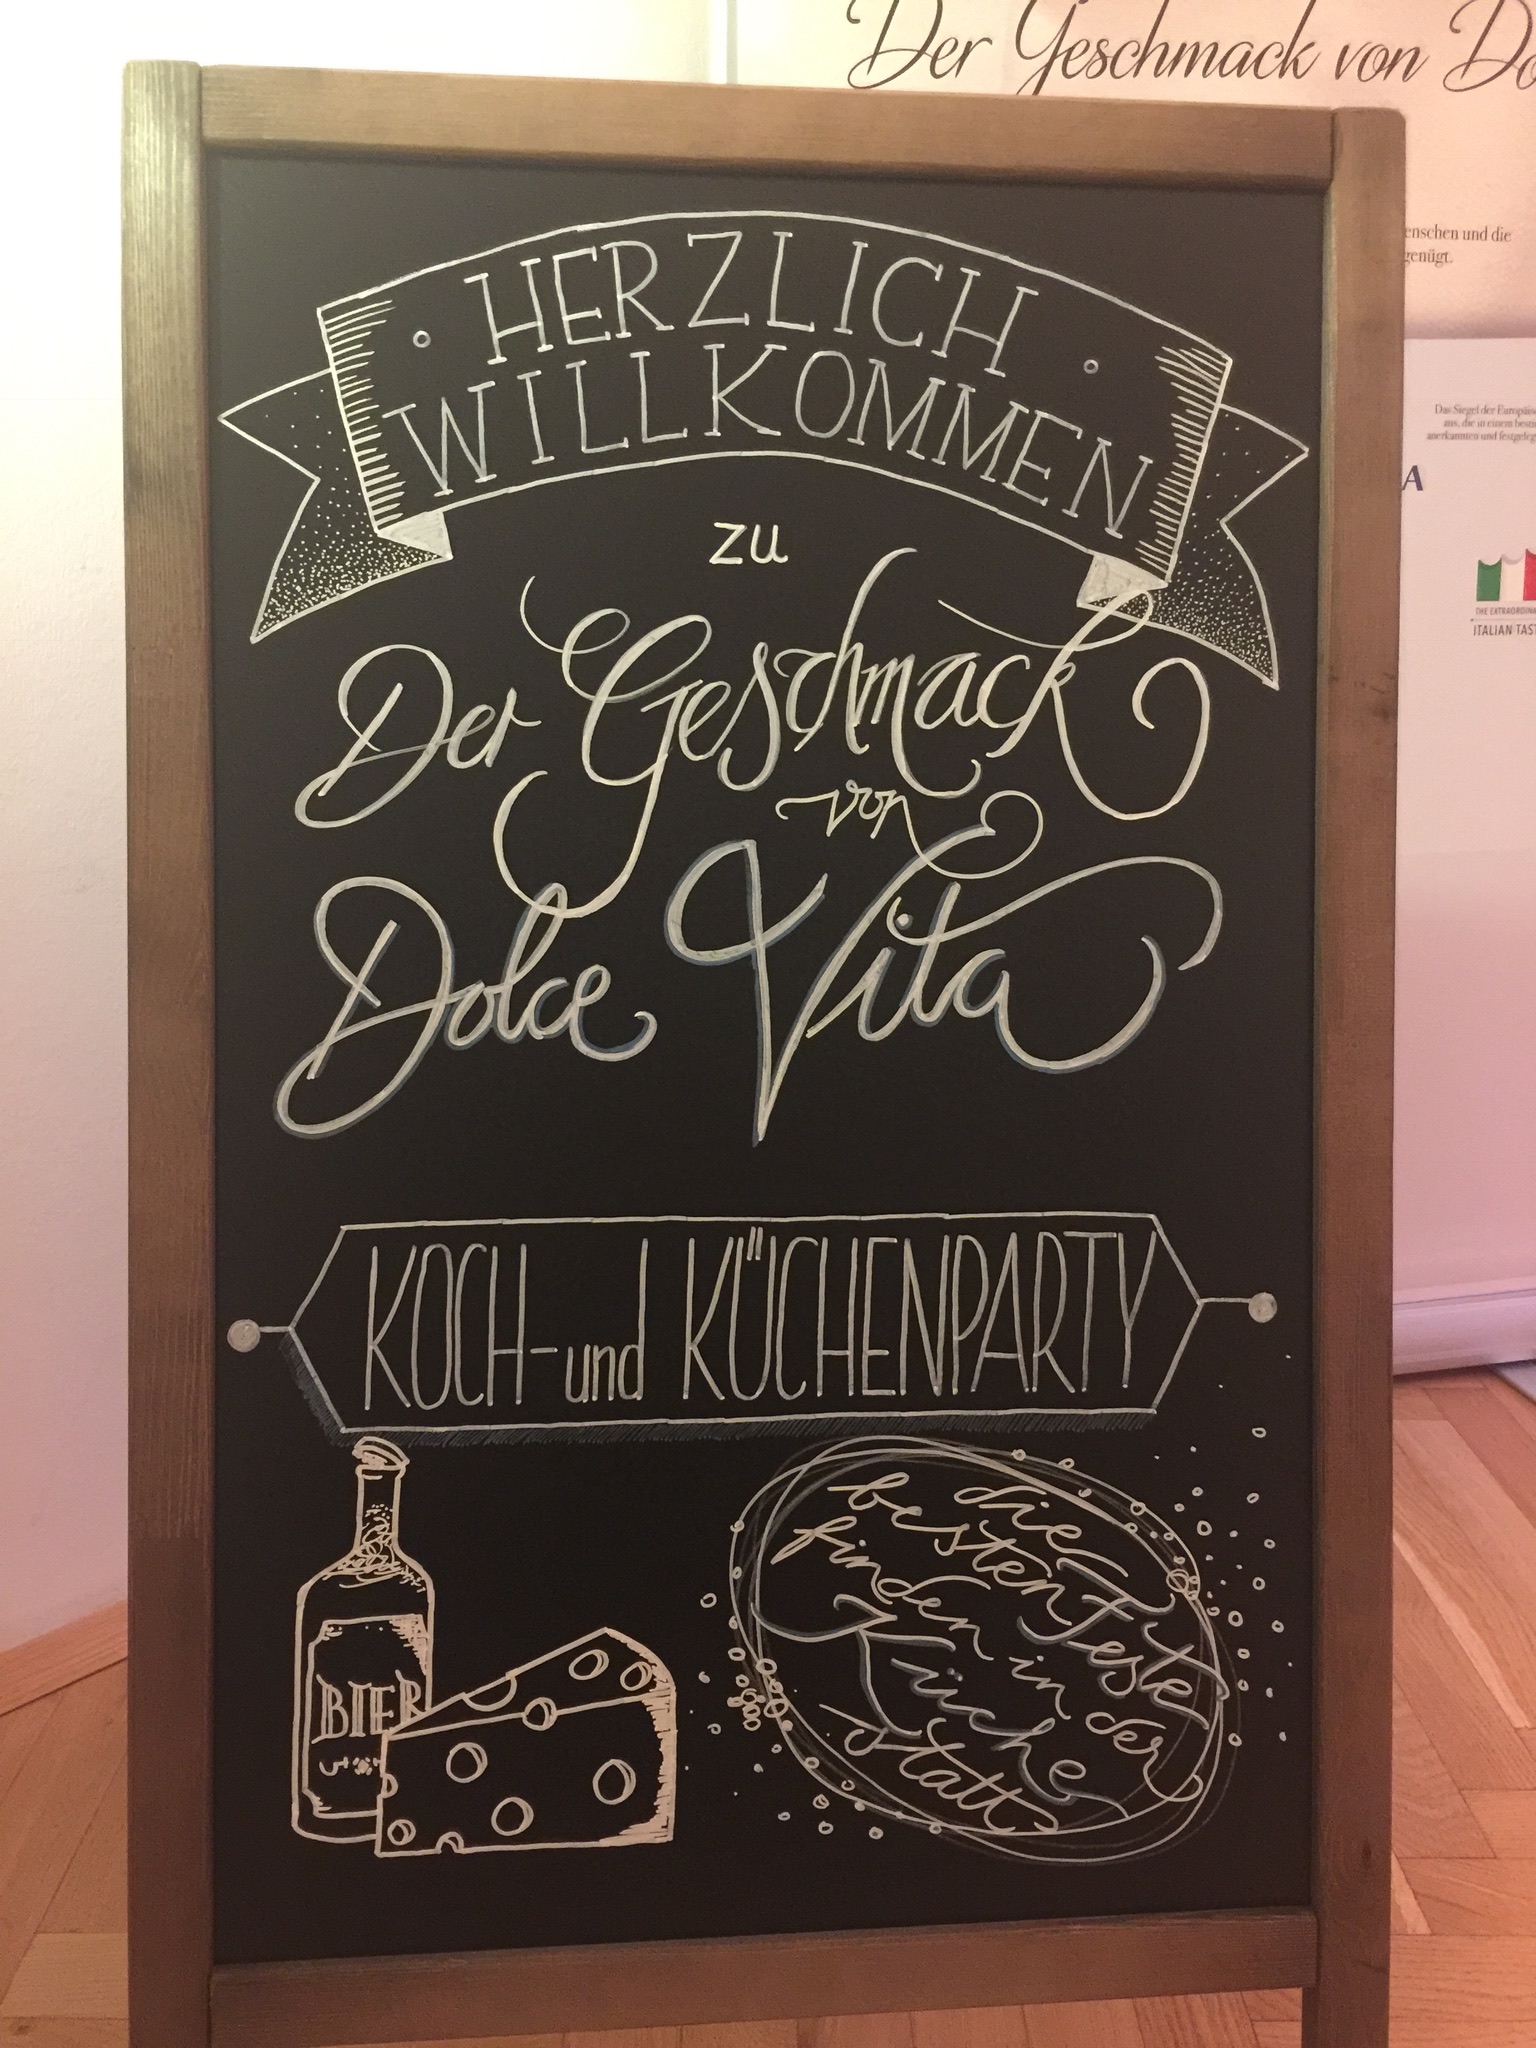 Der Geschmack von Do
enschen und die
genügt.
Das Siegel der Europäis
aus, die in einem besti
anerkannten und festgeleg
A
THE EXTRAORDINA
ITALIAN TAST
HERZLICH
WILLKOMMEN
zu
Der Geschmack
von
Dolce Vita
KOCH- und KÜCHENPARTY
BIER
die
besten Feste
finden in der
Küche
statt